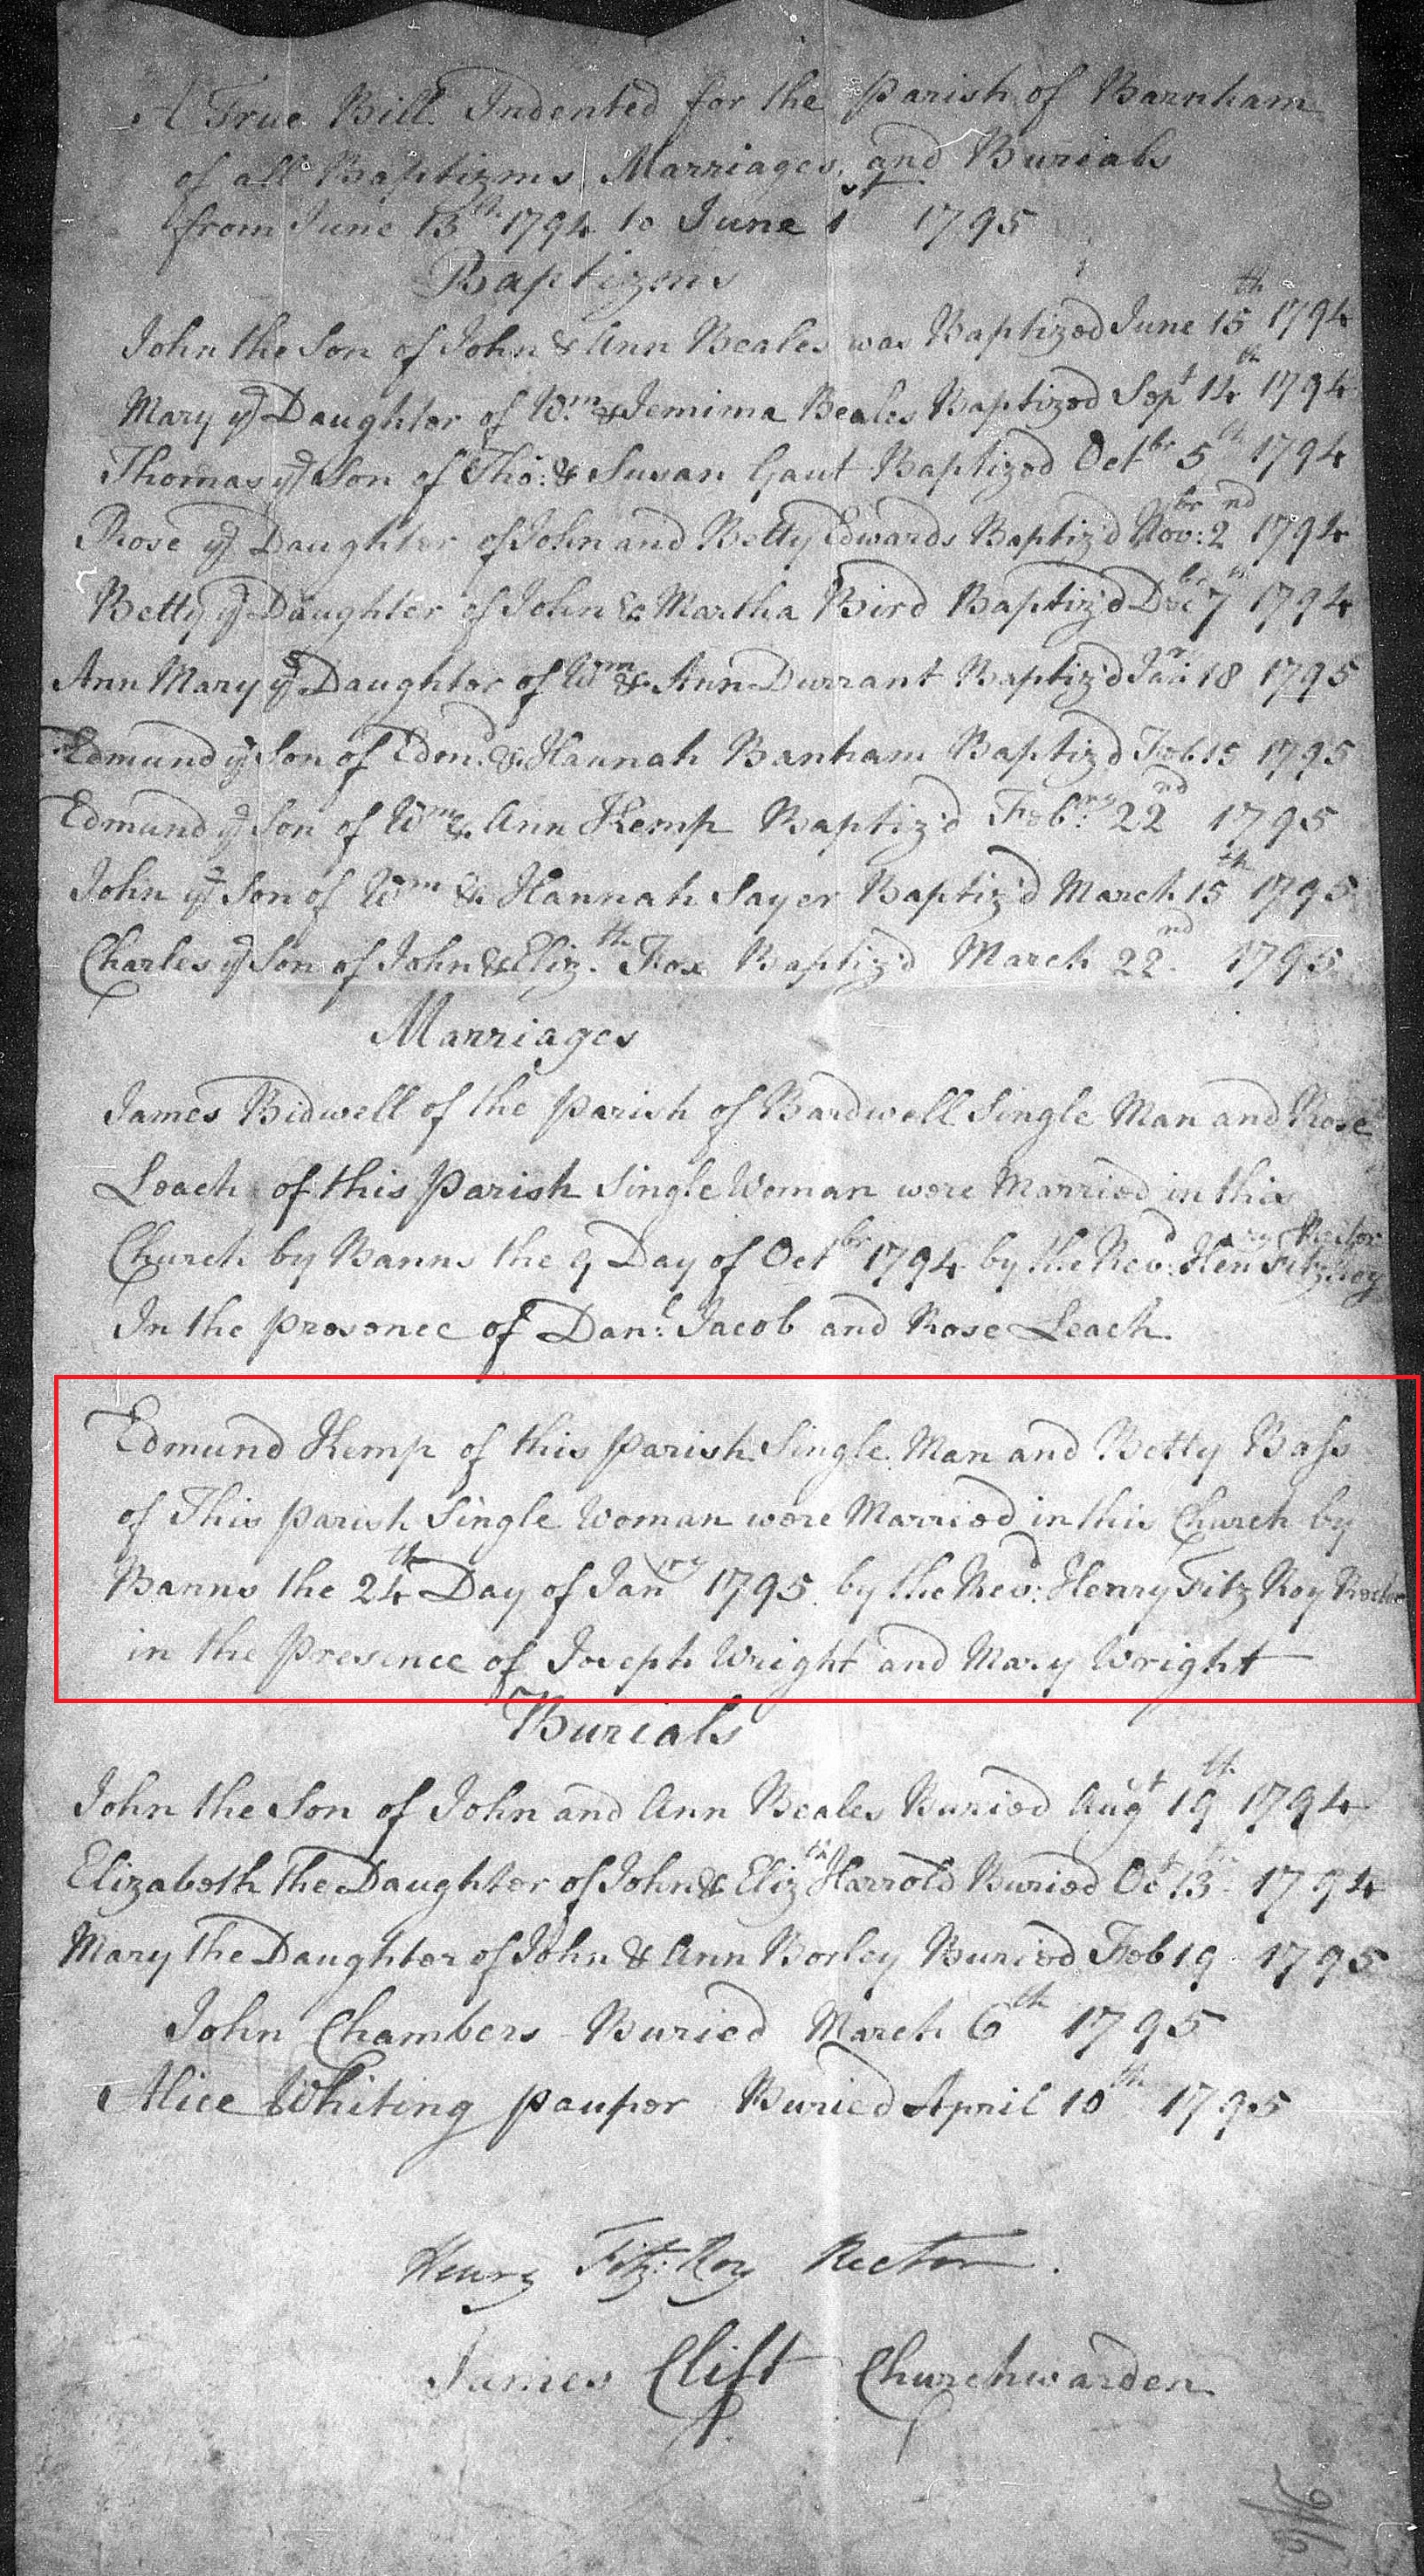 A True Bill Indented for the Parish of Barnham
of all Baptizms Marriages, and Burials
from June 13th 1794 to June 1st 1795
Baptizms
John the Son of John & Ann Beales was Baptized June 15th 1794
Mary ye Daughter of Wm & Jemima Beales Baptized Sept 14th 1794
Thomas ye Son of Tho: & Susan Gaut Baptized Octbr 5th 1794
Rose ye Daughter of John and Betty Edwards Baptiz'd Novbr: 2nd 1794
Betty ye Daughter of John & Martha Bird Baptiz'd Decbr 7th 1794
Ann Mary ye Daughter of Wm & Ann Durrant Baptiz'd Janr: 18 1795
Edmund ye Son of Edmd. & Hannah Banham Baptiz'd Feb 15 1795
Edmund ye Son of Wm & Ann Kemp Baptiz'd Febry: 22nd 1795
John ye Son of Wm & Hannah Sayer Baptiz'd March 15th 1795
Charles ye Son of John & Eliz.th Fox Baptiz'd March 22nd 1795
Marriages
James Bidwell of the Parish of Bardwell Single Man and Rose
Leach of this Parish Single Woman were Married in this
Church by Banns the 9 Day of Octbr 1794 by the Revd: Henry FitzRoy Rector
In the Presence of Danl: Jacob and Rose Leach.
Edmund Kemp of this Parish Single Man and Betty Bass
of This Parish Single Woman were Married in this Church by
Banns the 24th Day of Janry 1795 by the Revd: Henry Fitz Roy Rector
in the Presence of Joseph Wright and Mary Wright
Burials
John the Son of John and Ann Beales Buried Augt 19th 1794
Elizabeth The Daughter of John & Elizth Harrold Buried Oct 13 1794
Mary The Daughter of John & Ann Borley Buried Feb 19 1795
John Chambers Buried March 6th 1795
Alice Whiting pauper Buried April 10th 1795
Henry Fitz:Roy Rector.
James Clift Churchwarden